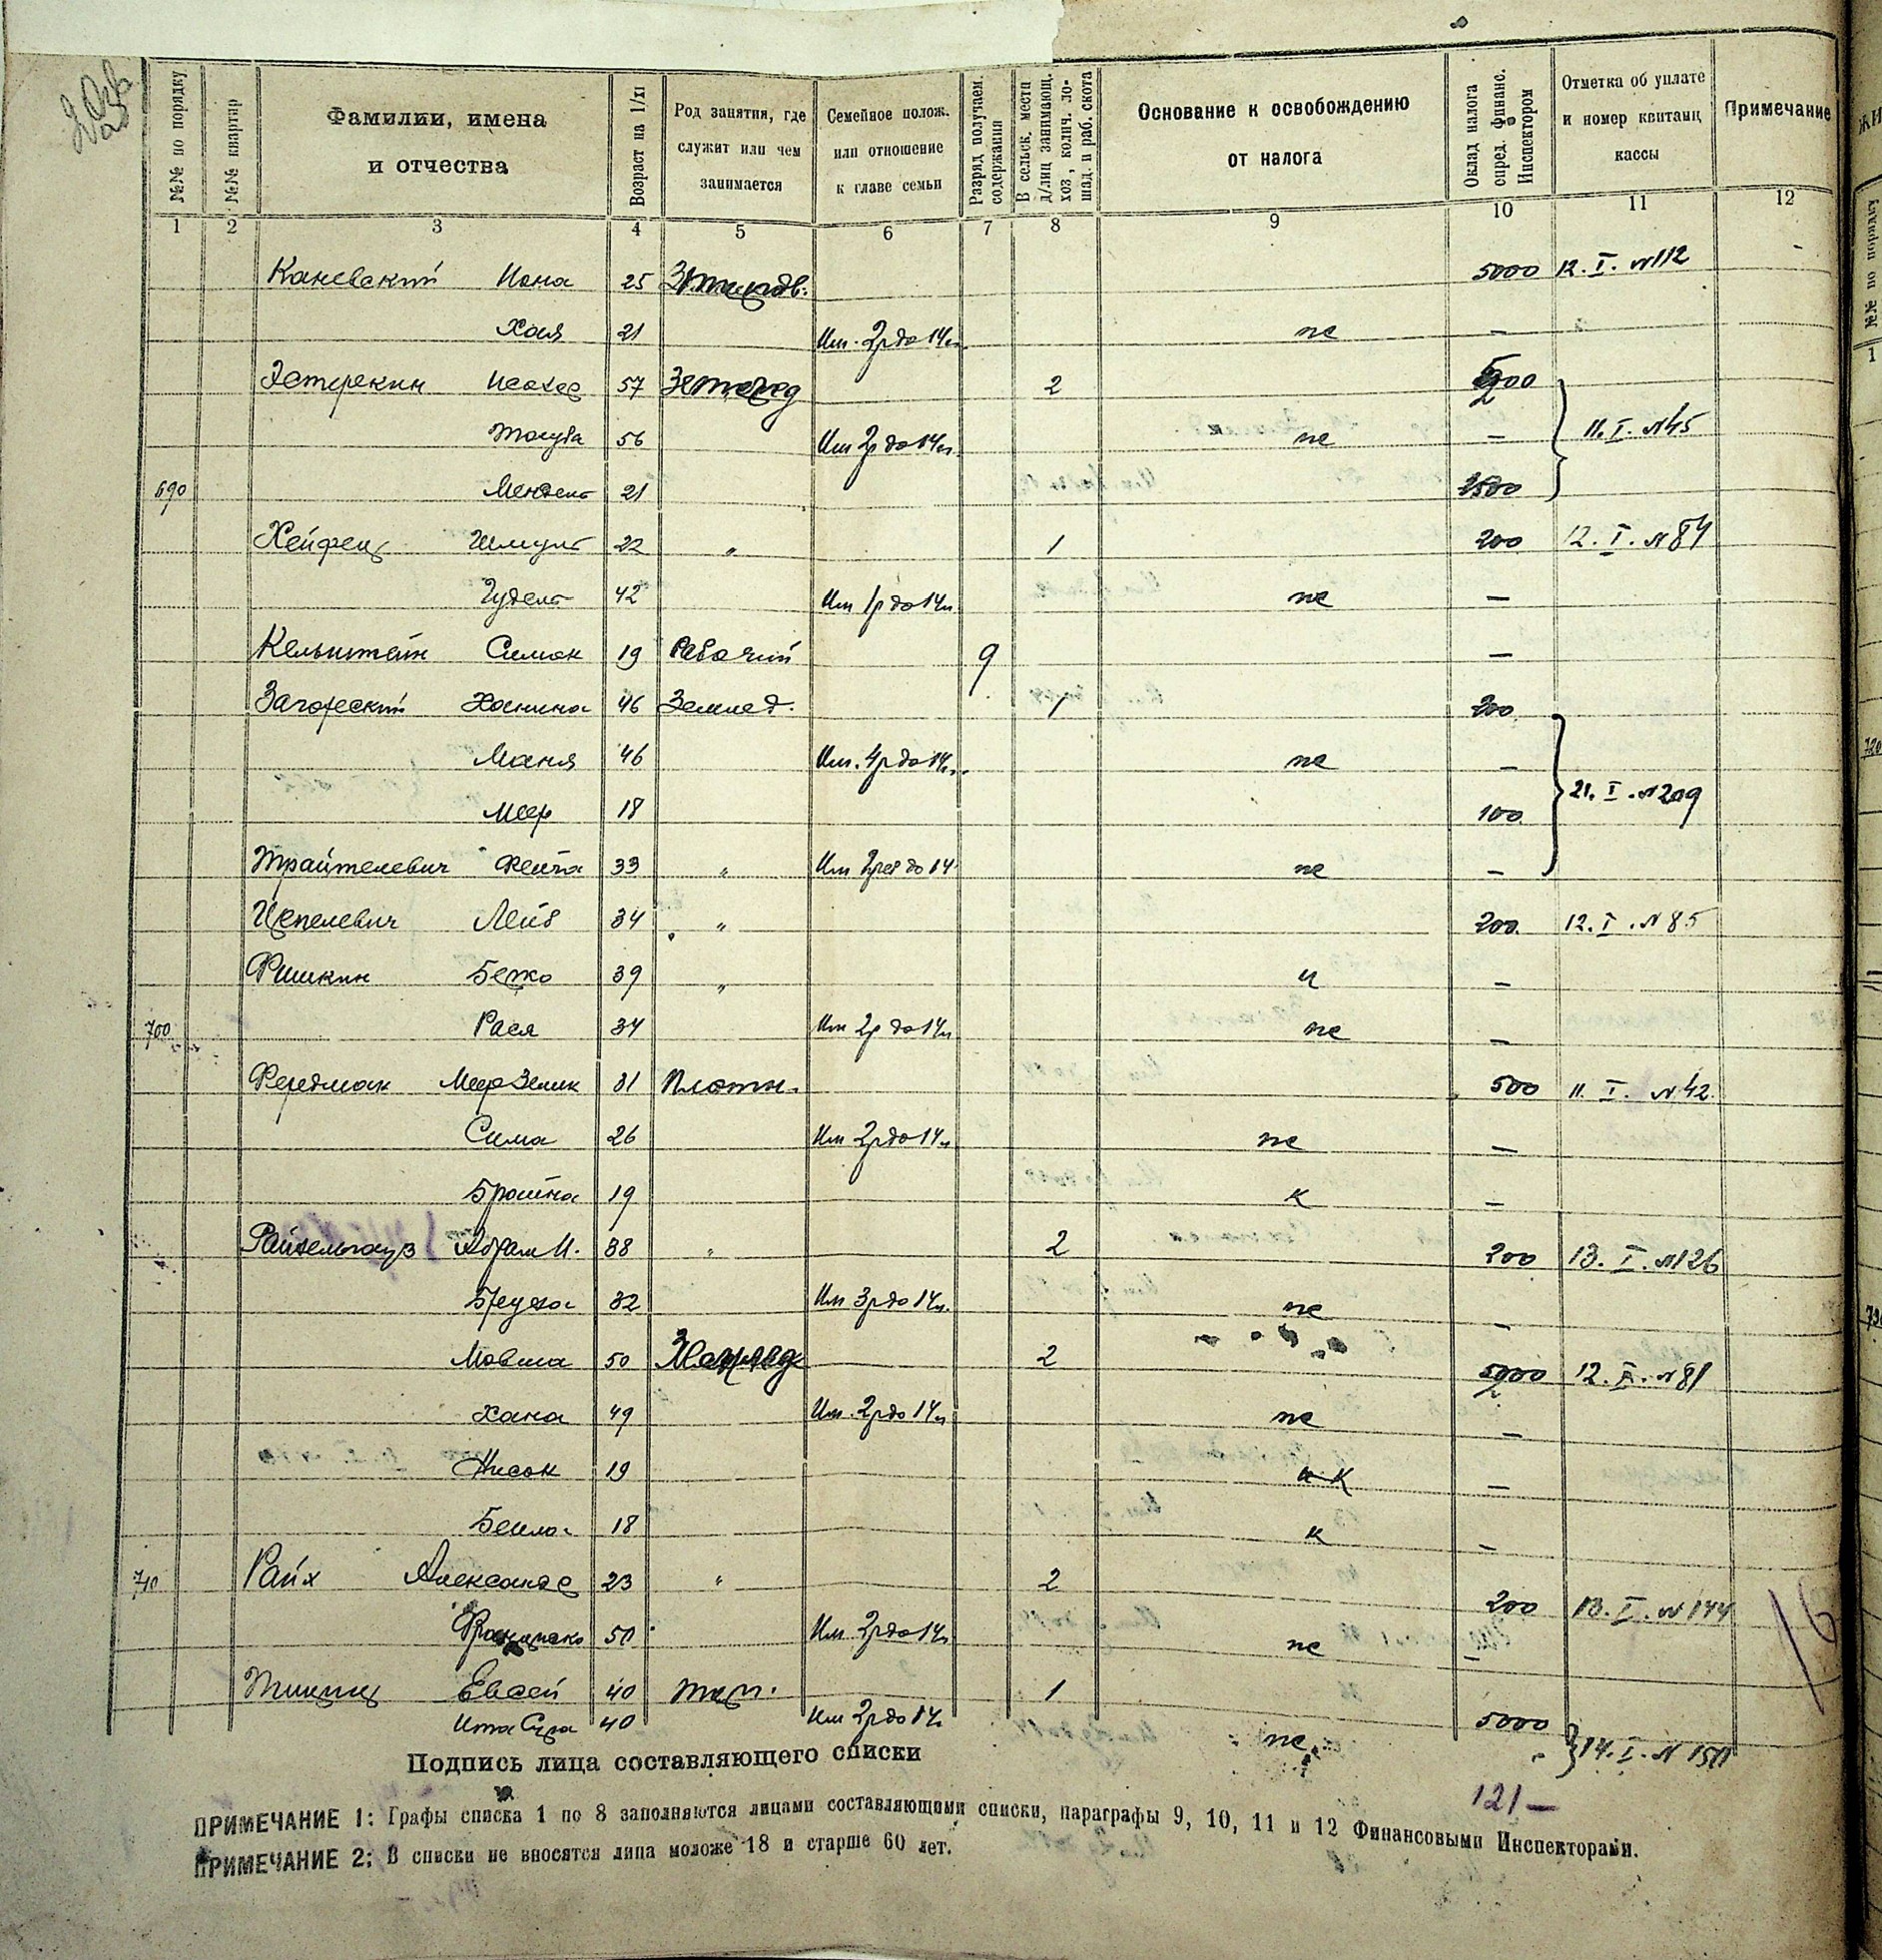 №№ по порядку
№№ квартир
Фамилии, имена
и отчества
Возраст на 1/XI
Род занятия, где
служит или чем
занимается
Семейное полож.
или отношение
к главе семьи
Разряд получаем.
содержания
В сельск. мести
д/лиц занимающ.
хоз, колич. ло-
шад. и раб. скота
Основание к освобождению
от налога
Оклад налога
опред. финанс.
Инспектором
Отметка об уплате
и номер квитанц
кассы
Примечание
1 2 3 4 5 6 7 8 9 10 11 12
Каневский Иона 25 5000 12. I. №112
Хая 21 Им. 2р до 14л. не —
Эстеркин 57 2
56 Им 2р до 14л. не — 11. I. №45
690 Мендель 21 2500
Хейфец Шмуль 22 " 1 200 12. I. №84
Гудель 42 Им 1р до 14л не —
Кельштейн Симон 19 Рабочий 9 —
Загорский Ханина 46 Землед. 1 200
Маня 46 Им. 4р до 14л. не —
Меер 18 100 21. I. №209
Трайтелевич Фейга 33 " Им до 14 не —
Цепелевич Лейб 34 " 200. 12. I. №85
Фишкин Берко 39 " и —
700 Рася 34 Им 2р до 14л не —
Фридман Меер Зелик 31 Плотн. 500 11. I. №42.
Сима 26 Им 2р до 14л не —
Брайна 19 к —
Райхельгауз Абрам И. 38 " 2 200 13. I. №126
32 Им 3р до 14л. не —
Мовша 50 2 12. I. №81
Хана 49 Им. 2р до 14л не —
Нисон 19 к —
Бейла 18 к —
710 Райх Александр 23 " 2 200 13. I. №144
50 Им 2р до 14л не —
Евсей 40 1 5000
Ита Сура 40 Им 2р до 14л не 14. I. №150
Подпись лица составляющего списки
121 —
ПРИМЕЧАНИЕ 1: Графы списка 1 по 8 заполняются лицами составляющими списки, параграфы 9, 10, 11 и 12 Финансовыми Инспекторами.
ПРИМЕЧАНИЕ 2: В списки не вносятся лица моложе 18 и старше 60 лет.
16